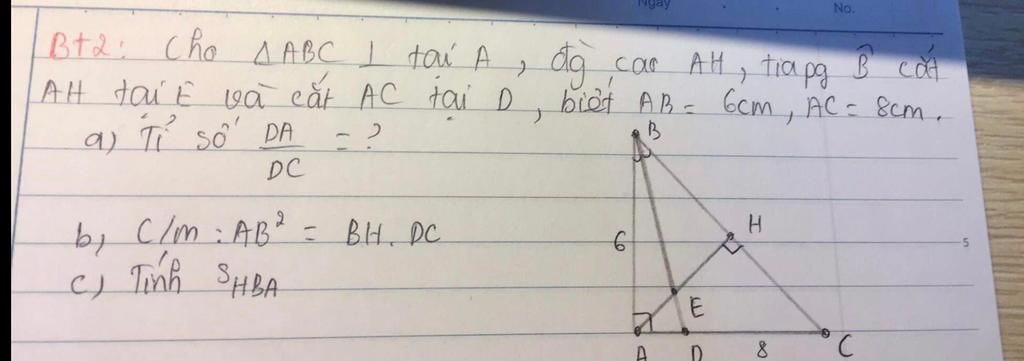 Ngày
No.
Bt2: Cho ΔABC ⊥ tại A, đg cao AH, tia pg B̂ cắt
AH tại E và cắt AC tại D, biết AB = 6cm, AC = 8cm.
a) Tỉ số DA/DC = ?
b, C/m : AB² = BH. DC
c) Tính S_HBA
B
6
H
5
E
A
D
8
C